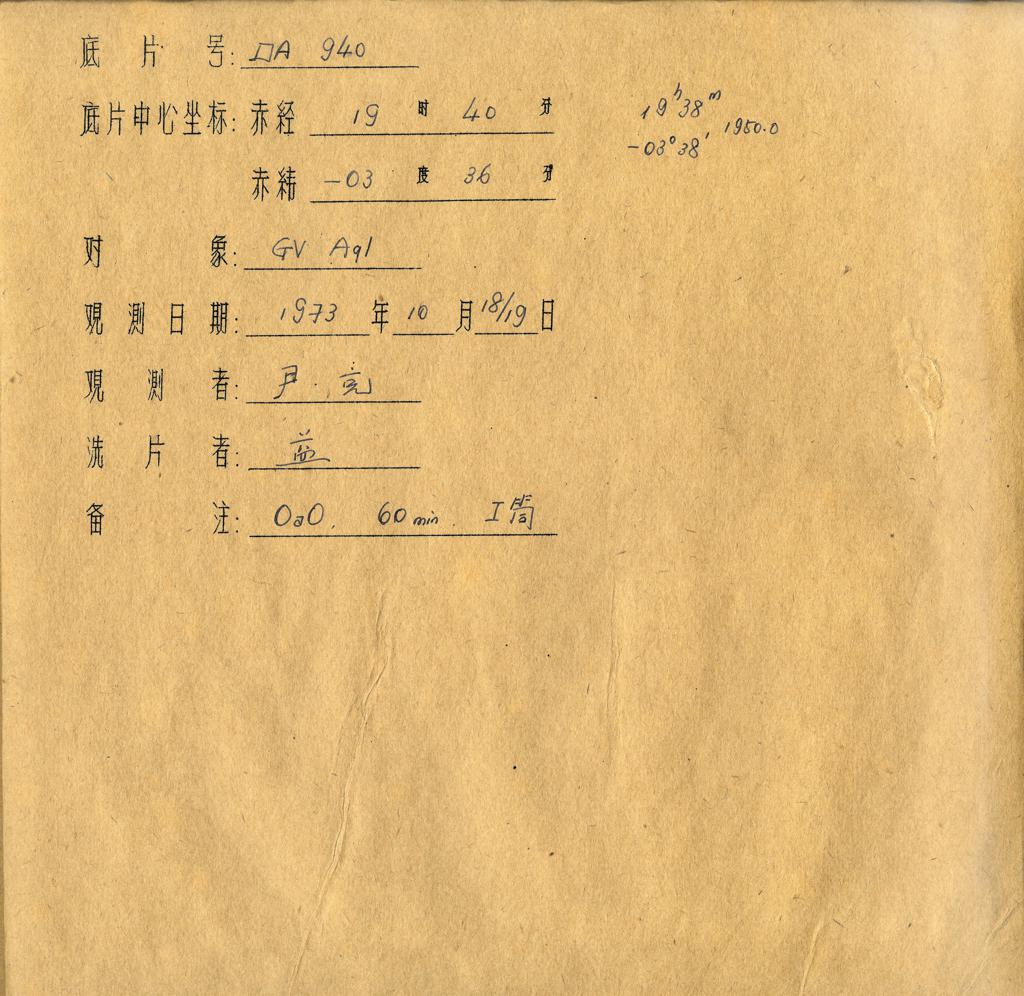 底片号: DA 940
底片中心坐标: 赤经 19 时 40 分
19ʰ38ᵐ
-03°38′ 1950.0
赤纬 -03 度 36 分
对象: GV Aql
观测日期: 1973 年 10 月 18/19 日
观测者: 尹.亮
洗片者: 益
备注: OaO. 60min. I筒